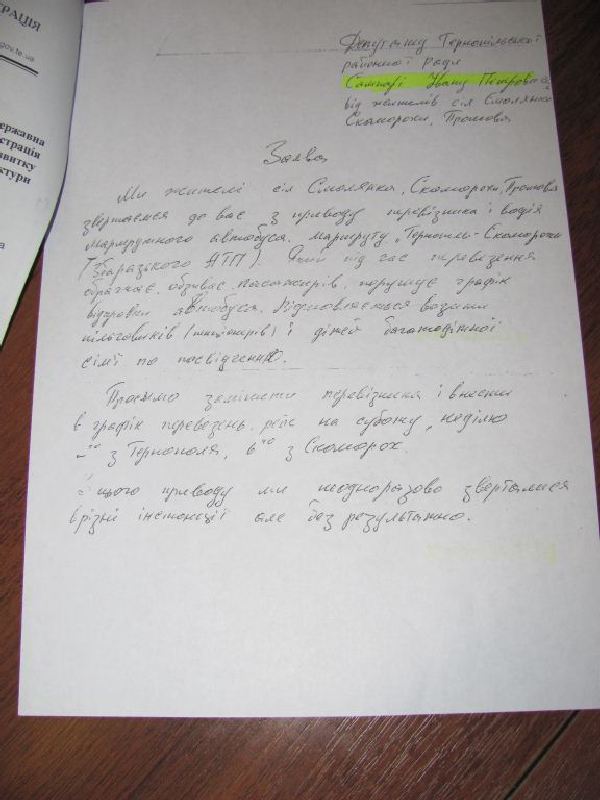 РАЦІЯ
gov.te.ua
ержавна
істрація
витку
ктури
Депутату Тернопільської
районної ради
Івану Петровичу
від жителів сіл Смолянка
Скоморохи, Прошова
Заява
Ми жителі сіл Смолянка, Скоморохи, Прошова
звертаємся до вас з приводу перевізника і водія
маршрутного автобуса. маршруту „Тернопіль-Скоморохи
(Збаразького АТП). Який під час перевезення
ображає, обзиває пасажирів, порушує графік
відправки автобуса. Відмовляється возити
пільговиків (пенсіонерів) і дітей багатодітної
сім'ї по посвідченню.
Просимо замінити перевізника і внести
в графік перевезень рейс на суботу, неділю
з Тернополя, в з Скоморох.
З цього приводу ми неодноразово зверталися
в різні інстанції але без результатно.